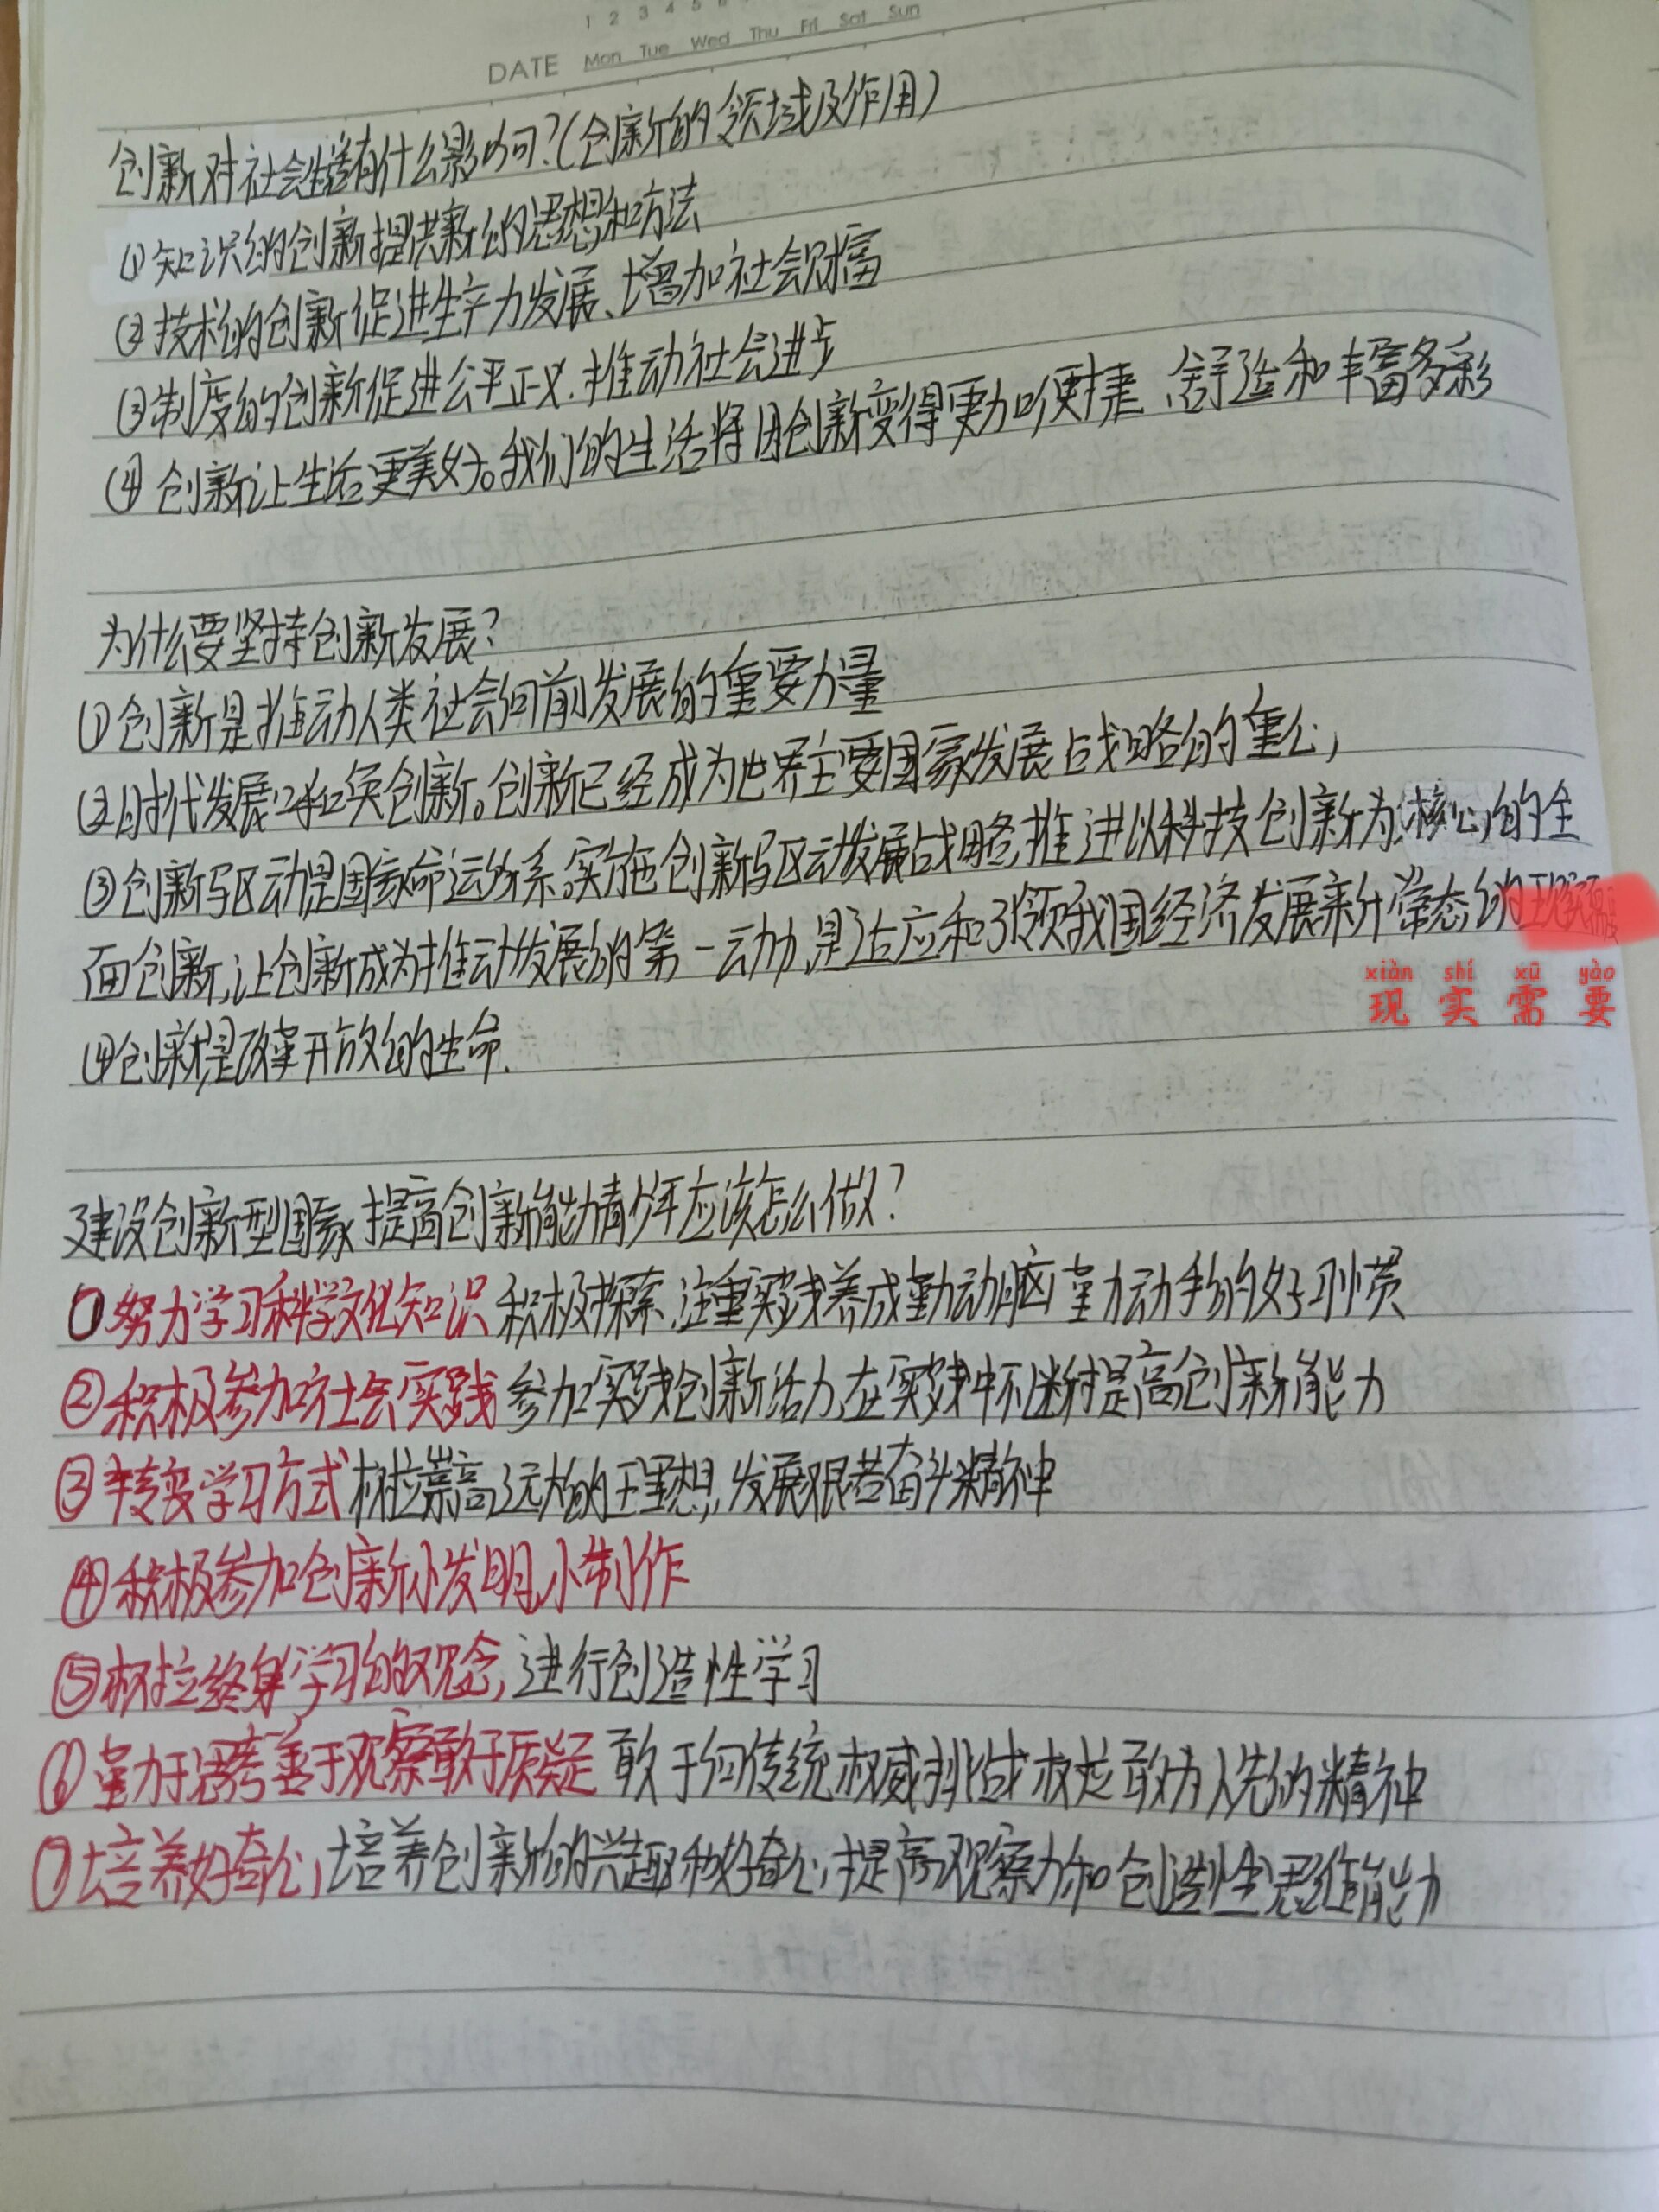 1 2 3 4 5 6
DATE Mon Tue Wed Thu Fri Sat Sun
创新对社会生活有什么影响?(创新的领域及作用)
(1)知识的创新提供新的思想和方法
(2)技术的创新促进生产力发展、增加社会财富
(3)制度的创新促进公平正义.推动社会进步
(4)创新让生活更美好。我们的生活将因创新变得更加便捷、舒适和丰富多彩
为什么要坚持创新发展?
①创新是推动人类社会向前发展的重要力量
②时代发展呼唤创新。创新已经成为世界主要国家发展战略的重心
③创新驱动是国家命运所系。实施创新驱动发展战略,推进以科技创新为核心的全
面创新,让创新成为推动发展的第一动力,是适应和引领我国经济发展新常态的现实需要
xiàn shí xū yào
现实需要
④创新是改革开放的生命.
建设创新型国家提高创新能力青少年应该怎么做?
①努力学习科学文化知识 积极探索,注重实践养成勤动脑勤动手的好习惯
②积极参加社会实践 参加实践创新活力,在实践中不断提高创新能力
③转变学习方式 树立崇高远大的理想,发展艰苦奋斗精神
④积极参加创新小发明,小制作
⑤树立终身学习的观念,进行创造性学习
⑥勤于思考善于观察敢于质疑 敢于向传统权威挑战树立敢为人先的精神
⑦培养好奇心,培养创新的兴趣和好奇心,提高观察力和创造性思维能力